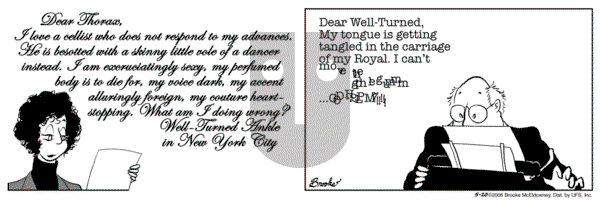 Dear Thorax,
I love a cellist who does not respond to my advances.
He is besotted with a skinny little vole of a dancer
instead. I am excruciatingly sexy, my perfumed
body is to die for, my voice dark, my accent
alluringly foreign, my couture heart-
stopping. What am I doing wrong?
Well-Turned Ankle
in New York City
Dear Well-Turned,
My tongue is getting
tangled in the carriage
of my Royal. I can't
move
Brooke
5-20 ©2006 Brooke McEldowney. Dist. by UFS, Inc.